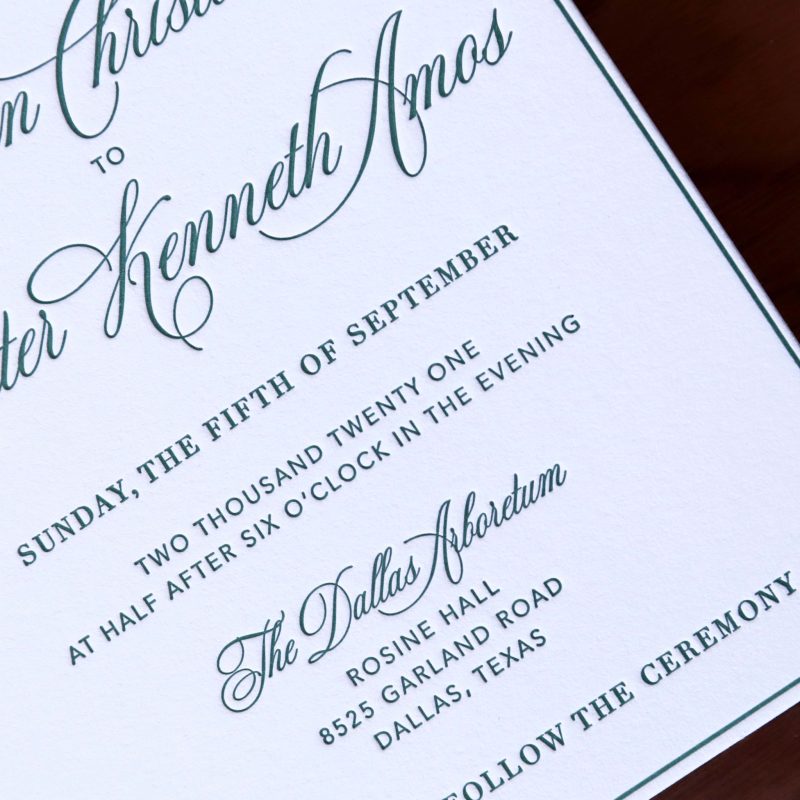 TO
Kenneth Amos
SUNDAY, THE FIFTH OF SEPTEMBER
TWO THOUSAND TWENTY ONE
AT HALF AFTER SIX O'CLOCK IN THE EVENING
The Dallas Arboretum
ROSINE HALL
8525 GARLAND ROAD
DALLAS, TEXAS
FOLLOW THE CEREMONY